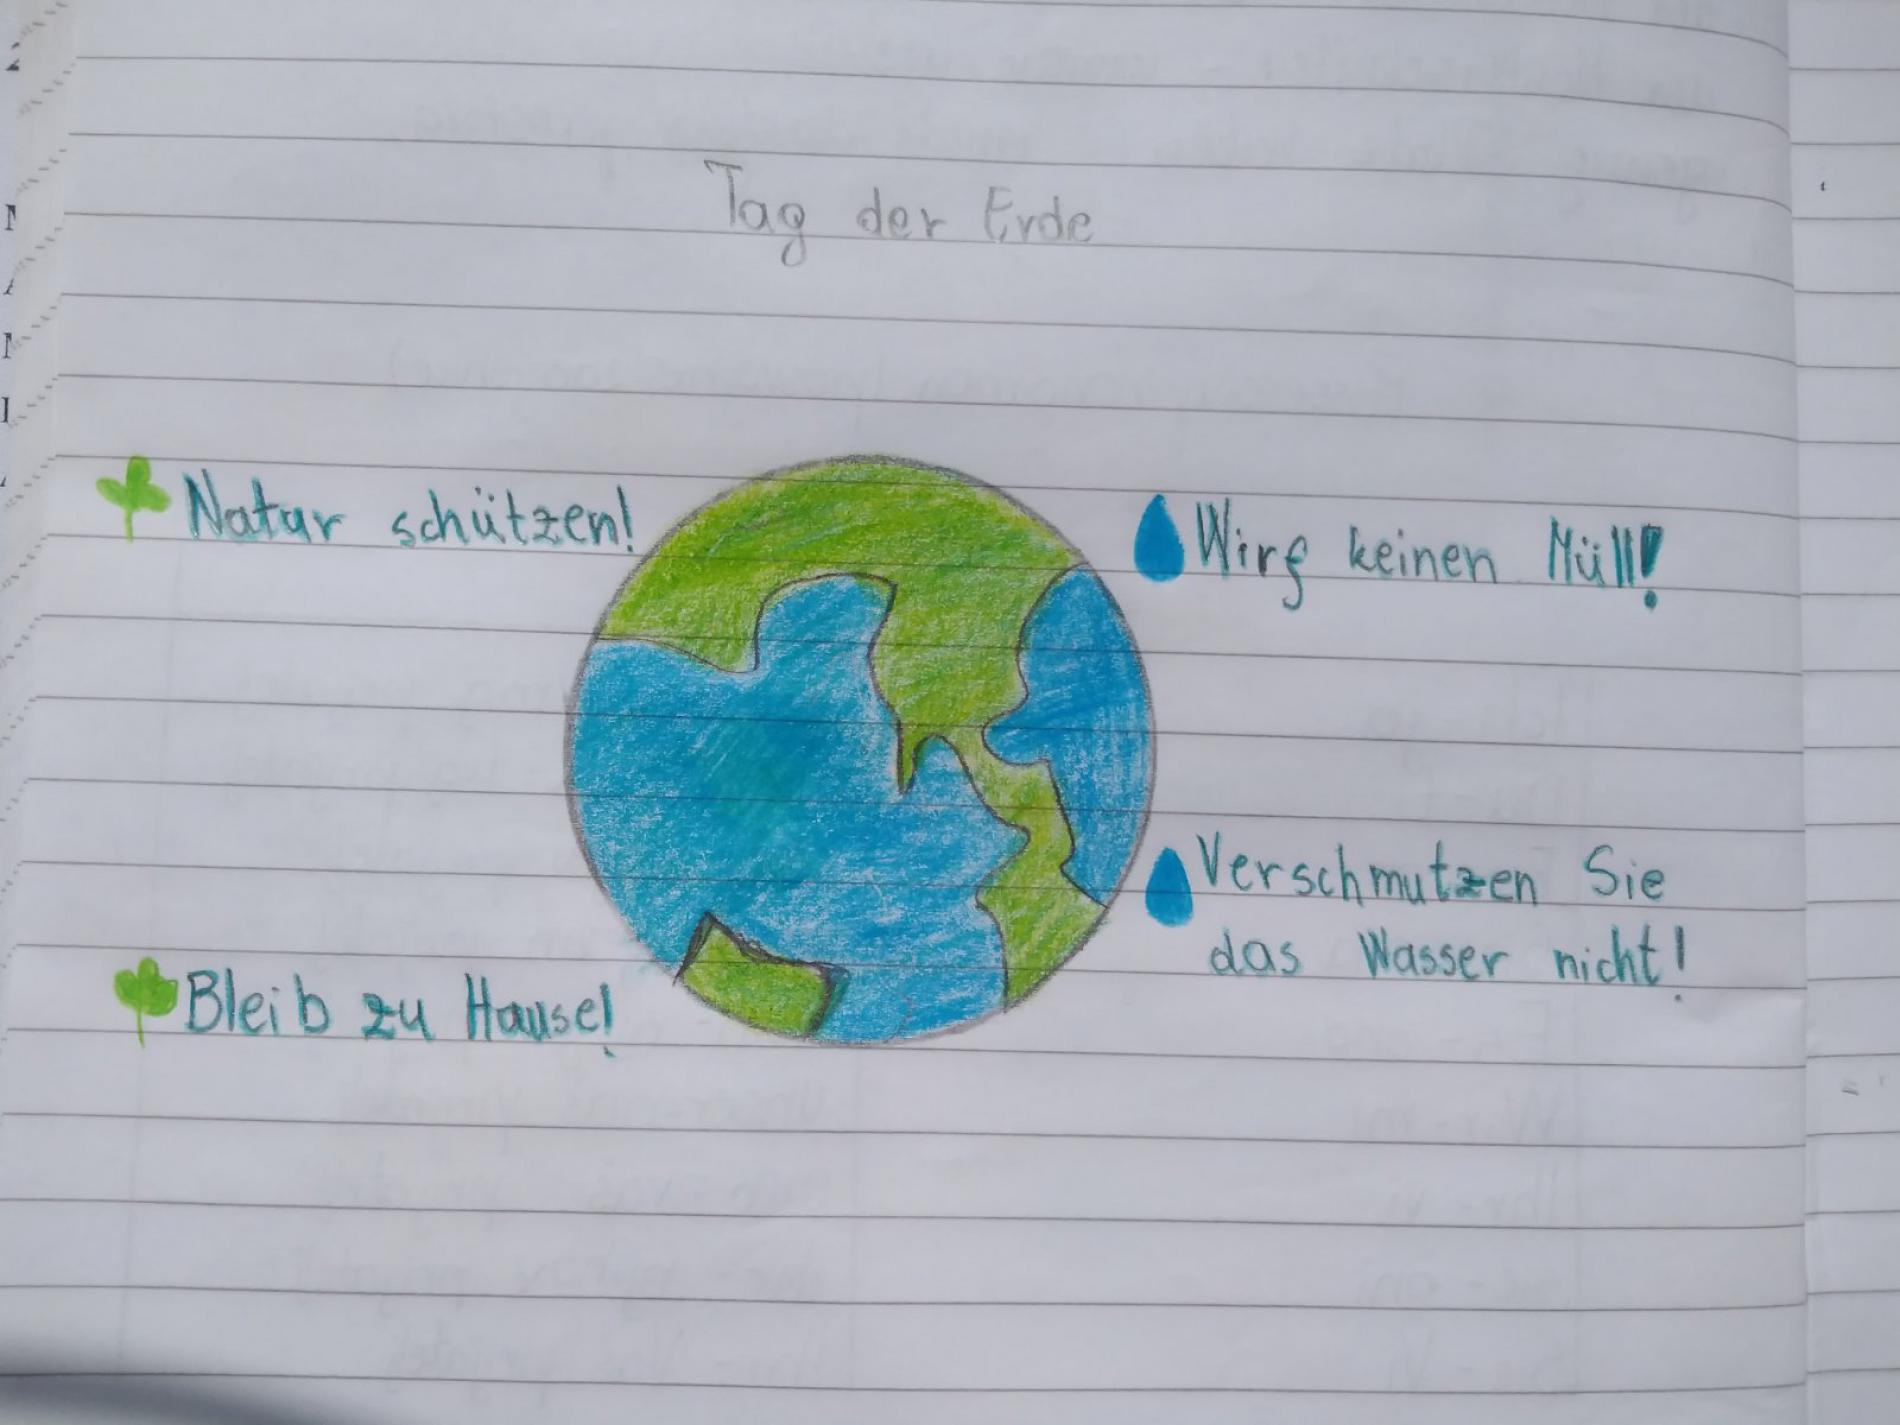 Tag der Erde
Natur schützen!
Wirf keinen Müll!
Verschmutzen Sie
das Wasser nicht!
Bleib zu Hause!